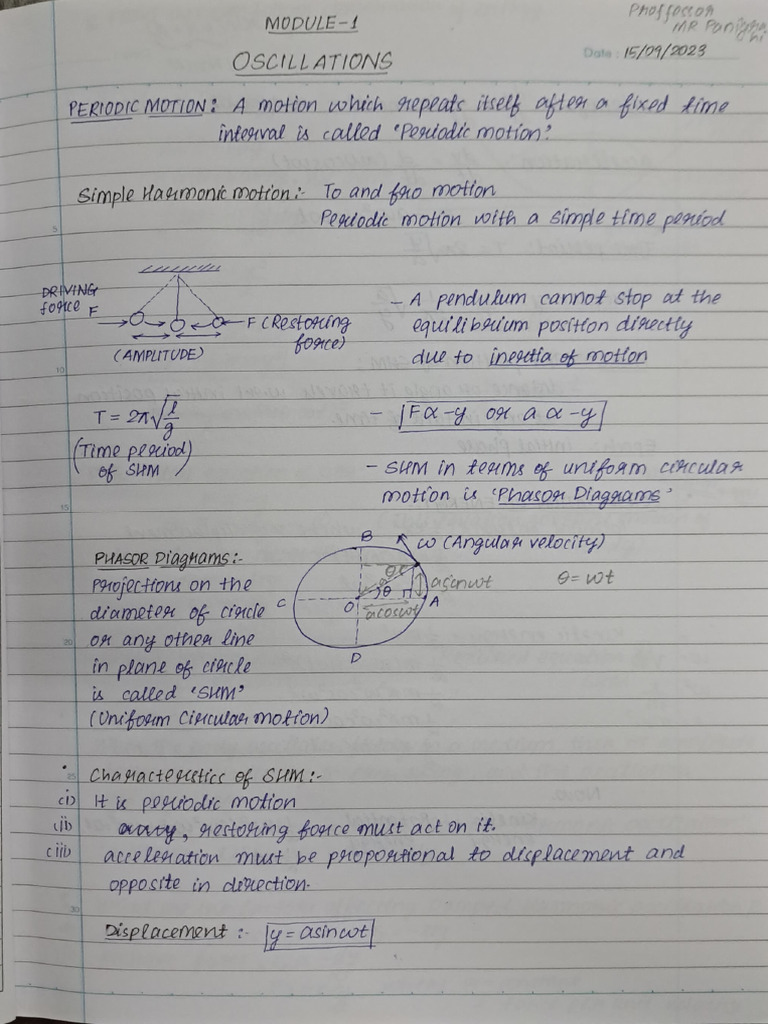 MODULE-1
Proffossor
MR Panigrahi
OSCILLATIONS
Date: 15/09/2023
PERIODIC MOTION: A motion which repeats itself after a fixed time
interval is called 'Periodic motion'.
Simple Harmonic motion:- To and fro motion
Periodic motion with a simple time period
5
DRIVING
force F
F (Restoring
force)
(AMPLITUDE)
- A pendulum cannot stop at the
equilibrium position directly
due to inertia of motion
10
T = 2π√l/g
(Time period)
of SHM
- F α -y or a α -y
- SHM in terms of uniform circular
motion is 'Phasor Diagrams'
15
PHASOR Diagrams:-
projections on the
diameter of circle
or any other line
in plane of circle
is called 'SHM'
(Uniform Circular motion)
20
B
ω (Angular velocity)
θ
a
asinωt
θ = ωt
C
O
θ
A
acosωt
D
25
Characteristics of SHM:-
(i) It is periodic motion
(ii) , restoring force must act on it.
(iii) acceleration must be proportional to displacement and
opposite in direction.
30
Displacement:- y = asinωt